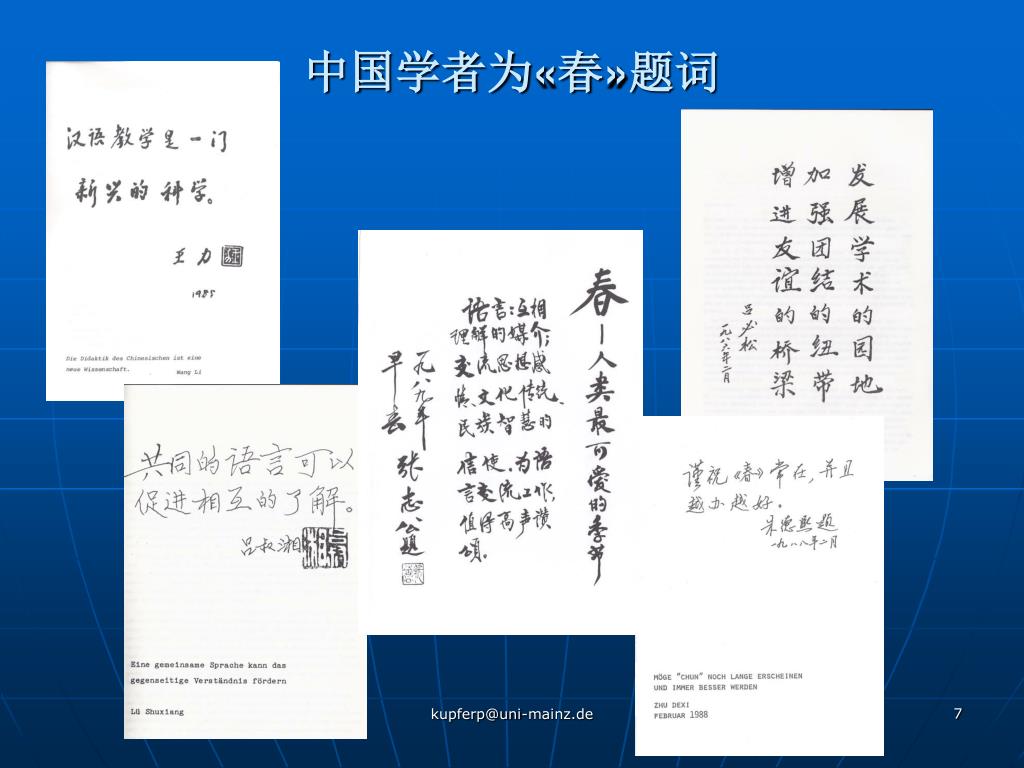 中国学者为«春»题词
汉语教学是一门
新兴的科学。
王力
1985
Die Didaktik des Chinesischen ist eine
neue Wissenschaft.
Wang Li
共同的语言可以
促进相互的了解。
吕叔湘
Eine gemeinsame Sprache kann das
gegenseitige Verständnis fördern
Lü Shuxiang
春—人类最可爱的季节
语言:互相
理解的媒介;
交流思想感
情、文化传统、
民族智慧的
信使.为语
言交流工作,
值得高声赞
颂.
一九八九年
早春
张志公题
发展学术的园地
加强团结的纽带
增进友谊的桥梁
吕必松
一九八六年二月
谨祝《春》常在,并且
越办越好.
朱德熙题
一九八八年二月
MÖGE "CHUN" NOCH LANGE ERSCHEINEN
UND IMMER BESSER WERDEN
ZHU DEXI
FEBRUAR 1988
kupferp@uni-mainz.de
7